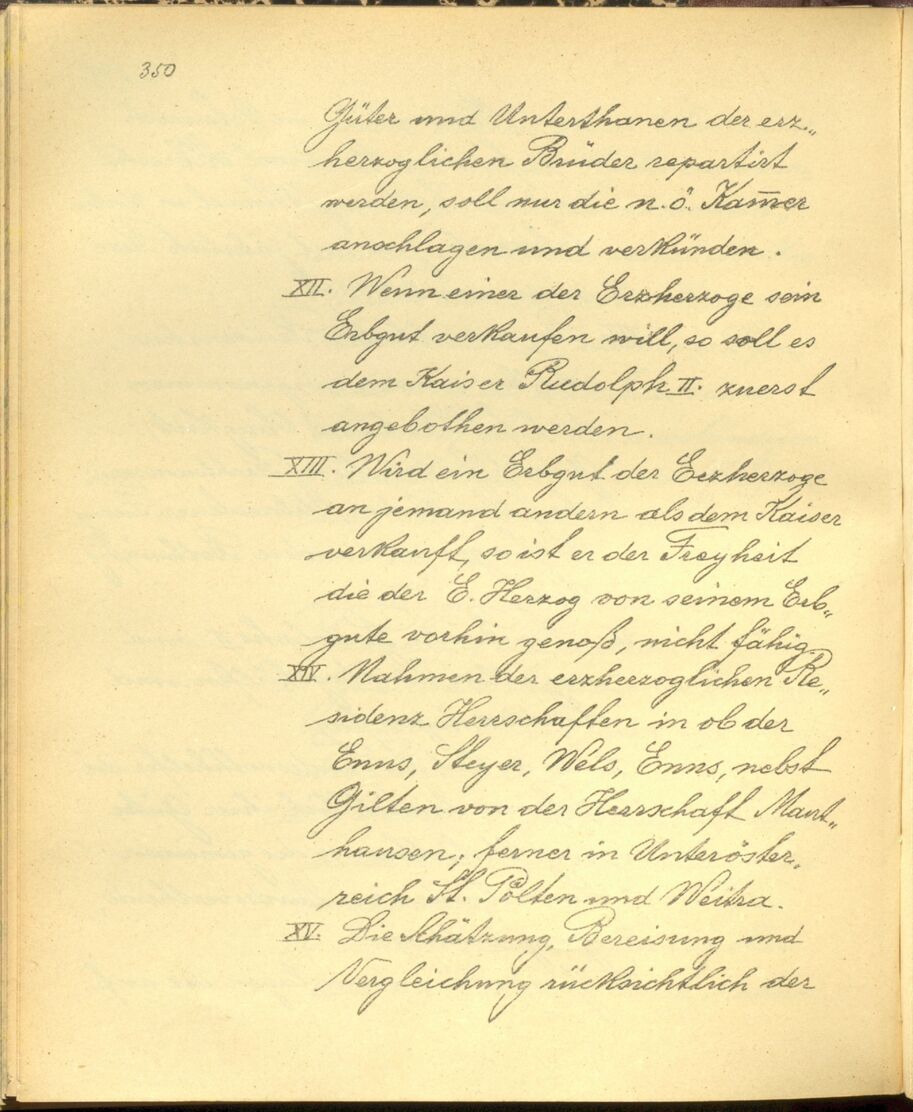 350
Güter und Unterthanen der erz„
herzoglichen Brüder repartirt
werden, soll nur die n. ö. Kam̄er
anschlagen und verkünden.
XII. Wenn einer der Erzherzoge sein
Erbgut verkaufen will, so soll es
dem Kaiser Rudolph II. zuerst
angebothen werden.
XIII. Wird ein Erbgut der Erzherzoge
an jemand andern als dem Kaiser
verkauft, so ist er der Freyheit
die der E. Herzog von seinem Erb„
gute vorhin genoß, nicht fähig.
XIV. Nahmen der erzherzoglichen Re„
sidenz Herrschaften in ob der
Enns, Steyer, Wels, Enns, nebst
Gilten von der Herrschaft Maut„
hausen; ferner in Unteröster„
reich St. Pölten und Weitra.
XV. Die Schätzung, Bereisung und
Vergleichung rücksichtlich der